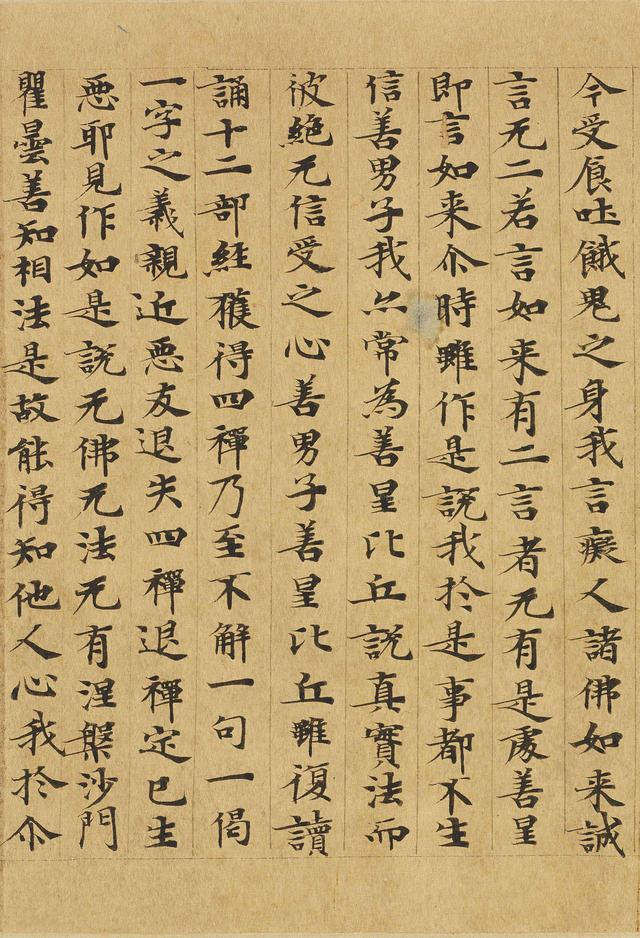 今受食吐餓鬼之身我言癡人諸佛如来誠
言无二若言如来有二言者无有是處善星
即言如来尒時雖作是説我扵是事都不生
信善男子我亦常為善星比丘説真實法而
彼絶无信受之心善男子善星比丘雖復讀
誦十二部經獲得四禪乃至不解一句一偈
一字之義親近惡友退失四禪退禪定已生
惡耶見作如是説无佛无法无有涅槃沙門
瞿曇善知相法是故能得知他人心我扵尒